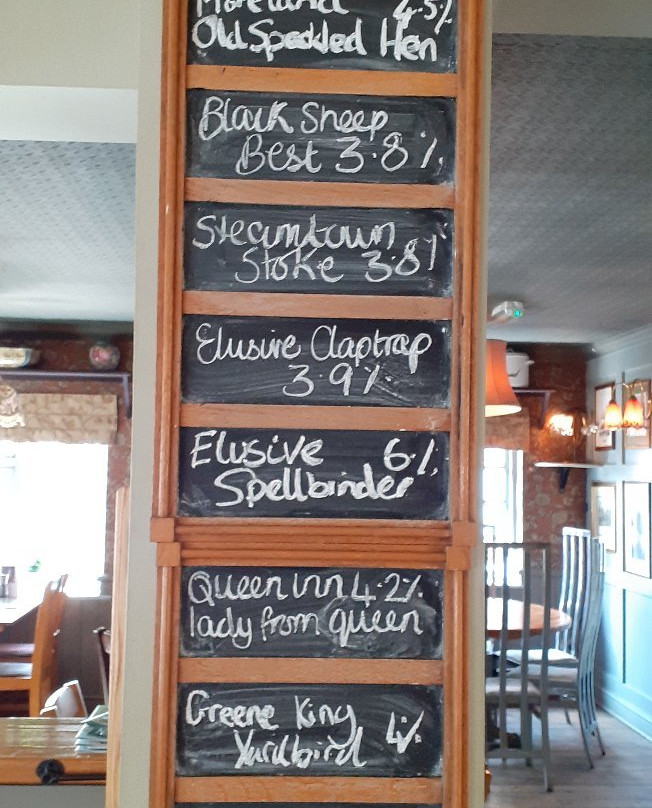 Moreland 4.5%
Old Speckled Hen
Black Sheep
Best 3.8%
Steamtown
Stoke 3.8%
Elusive Claptrap
3.9%
Elusive 6%
Spellbinder
Queen Inn 4.2%
lady from queen
Greene King
Yardbird 4%